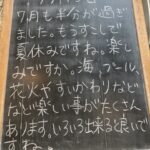 7月も半分が過ぎ
ました。もうすこしで
夏休みですね。楽し
みですか。海、プール
花火やすいかわりなど
など楽しい事がたくさん
あります。いろいろ出来ると良いで
すね。